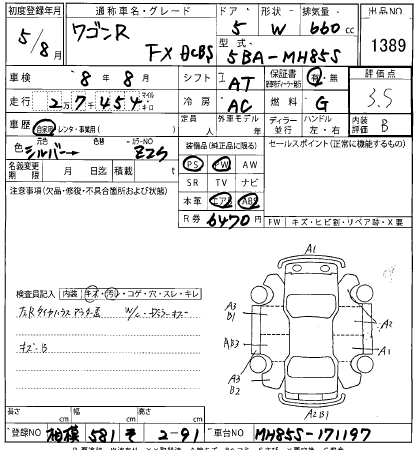 初度登録年月 通称車名・グレード ドア 形状 排気量 出品NO
5/8月 ワゴンR FX 5 W 660 cc 1389
型式 5BA-MH85S
車検 8年8月 シフト AT 保証書 有・無 評価点
走行 2万7千454 マイル キロ 冷房 AC 燃料 G 3.5
車歴 自家用 レンタ・事業用( ) 定員 人 外車モデル 年 ディーラー 並行 ハンドル 左・右 内装評価 B
色 元色 シルバー→ カラーNO Z2S 装備品(純正品に限る) セールスポイント(正常に機能するもの)
名義変更期限 月 日迄 積載 t PS PW AW
注意事項(欠品・修復・不具合箇所および状態) SR TV ナビ
本革 エアB ABS
R券 6470円 FW キズ・ヒビ割・リペア跡・X要
A1
検査員記入 内装 キズ・汚レ・コゲ・穴・スレ・キレ
A3 B1 A2
AB3 A1
キズ・B
A3 B2
A2 B1
長さ cm 幅 cm 高さ cm
登録NO 相模 581 そ 2-91 車台NO MH85S-171197